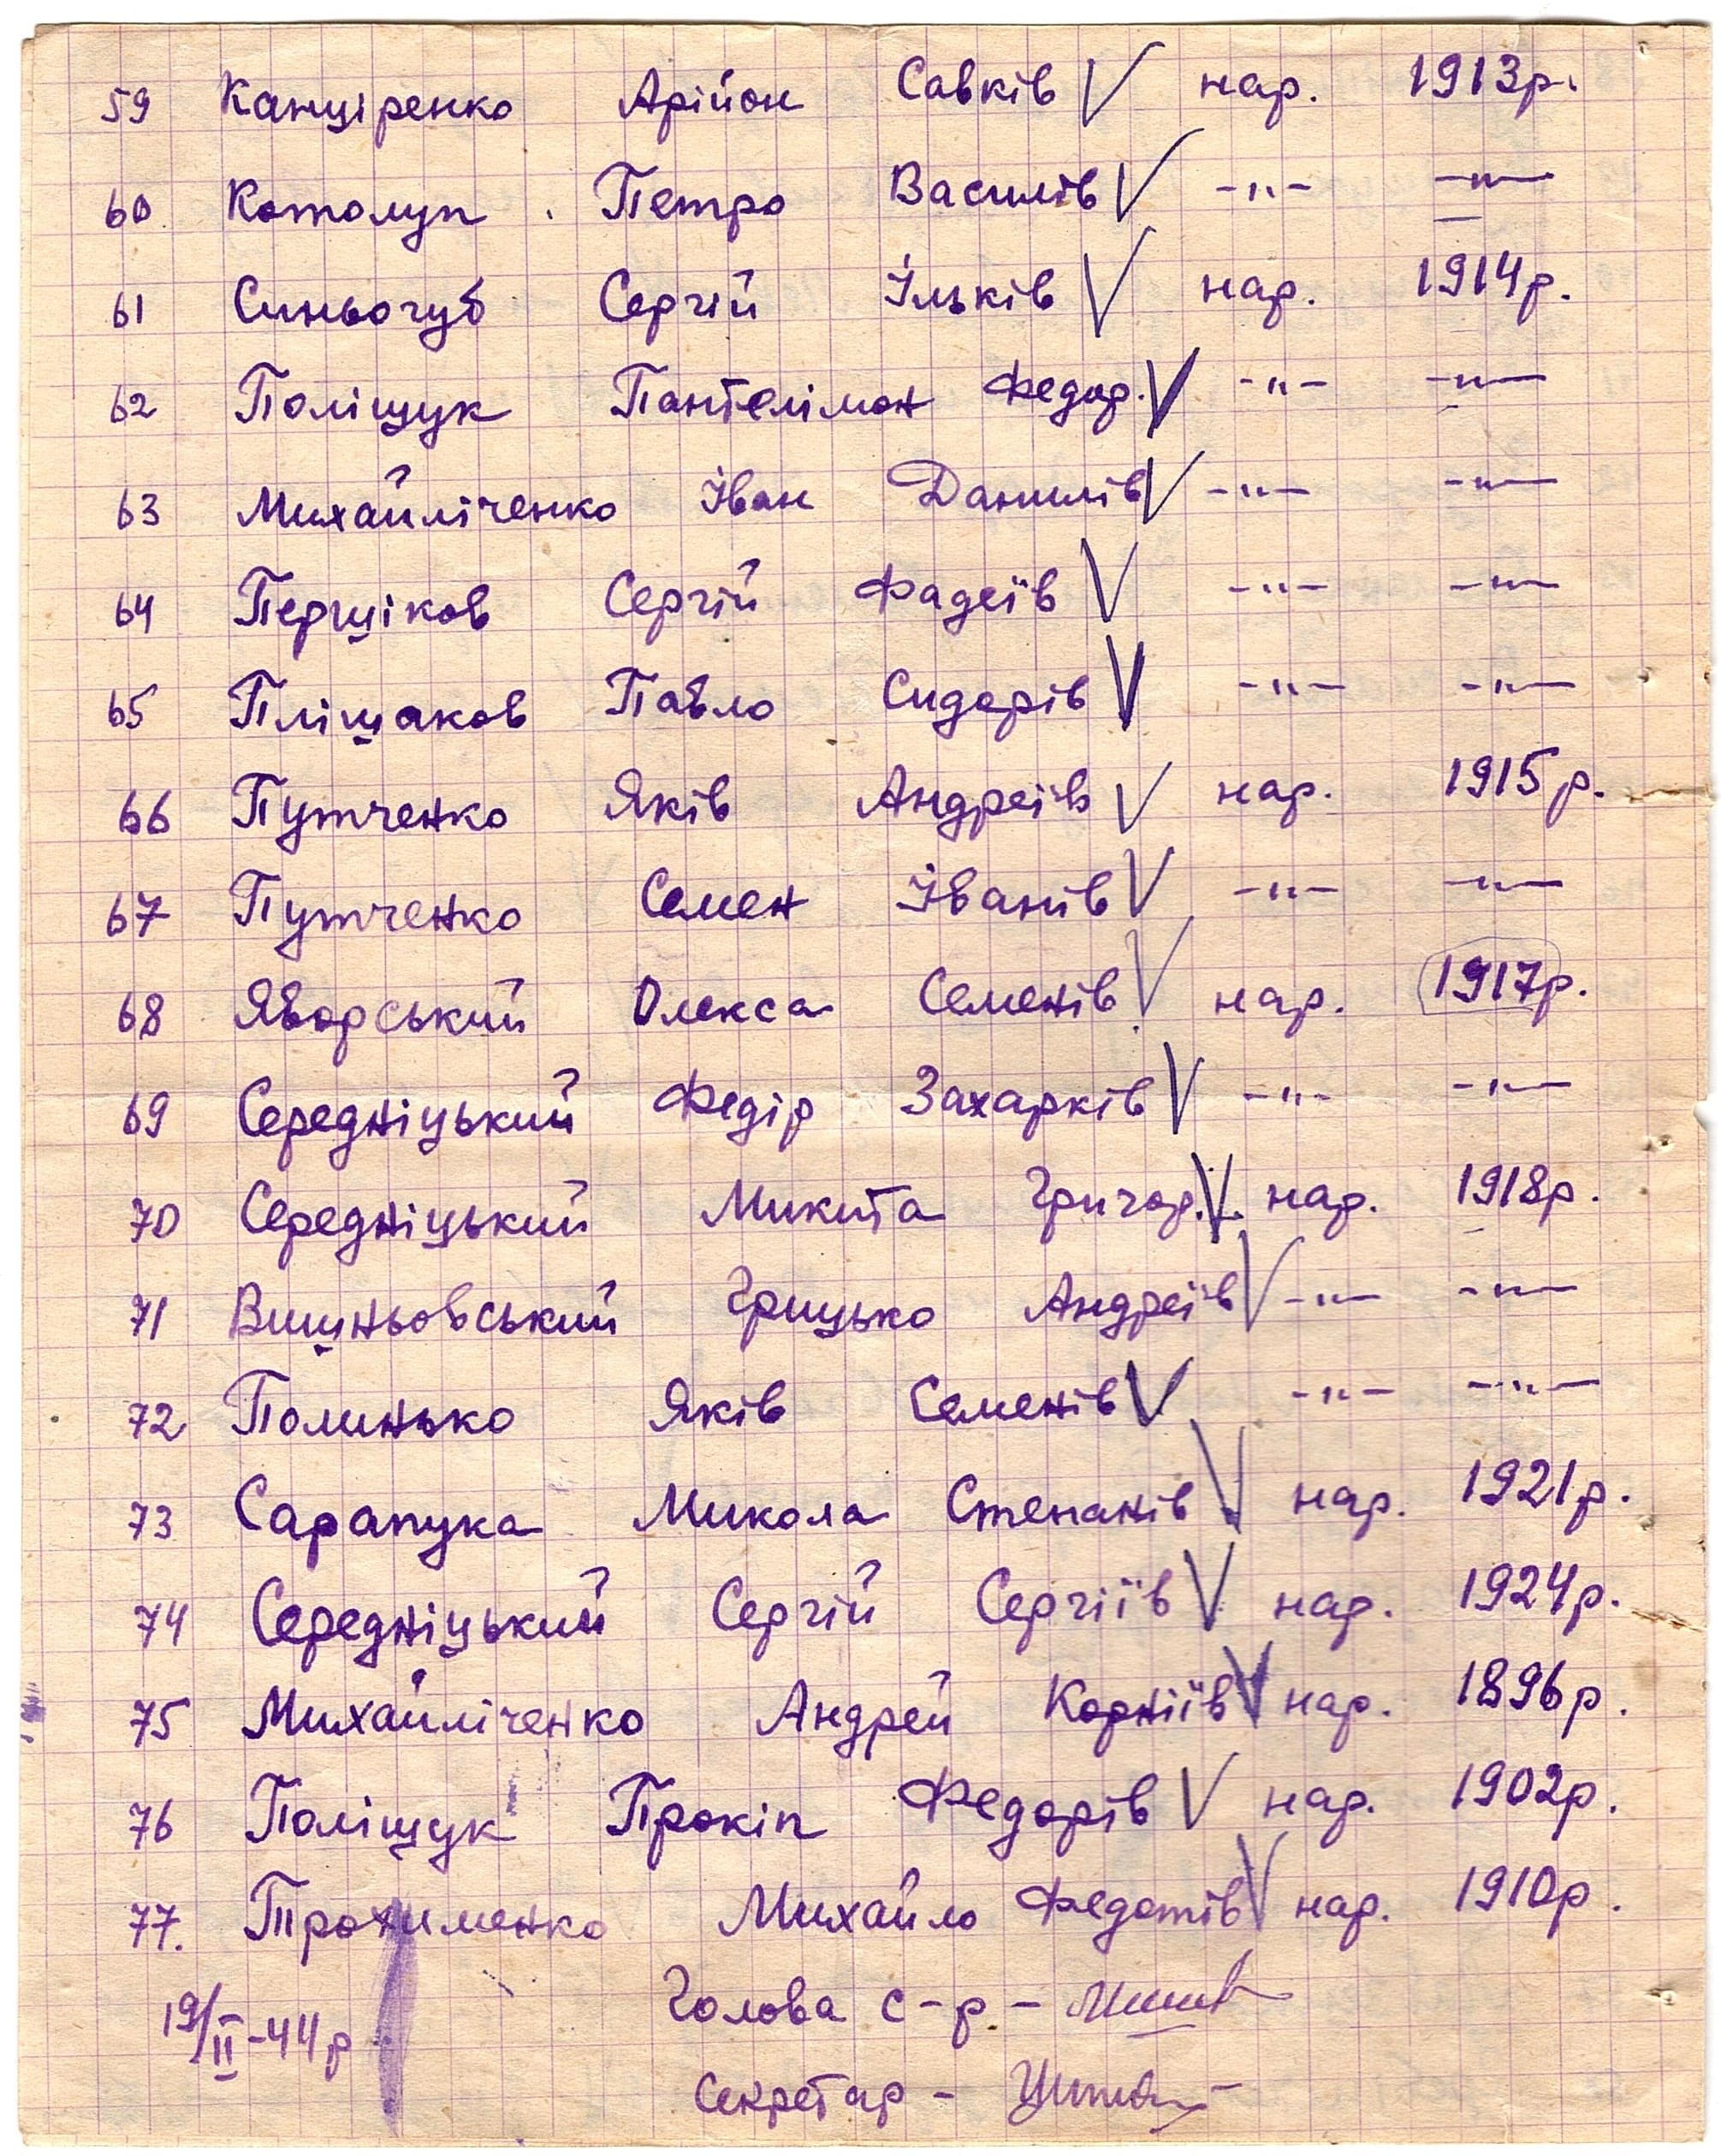 59 Канціренко Арійон Савків V нар. 1913р.
60 Котолуп Петро Василів V -"- -"-
61 Синьогуб Сергій Ільків V нар. 1914р.
62 Поліщук Пантелімон Федор. V -"- -"-
63 Михайліченко Іван Данилів V -"- -"-
64 Перщіков Сергій Фадеїв V -"- -"-
65 Плішаков Павло Сидорів V -"- -"-
66 Путченко Яків Андреїв V нар. 1915р.
67 Путченко Семен Іванів V -"- -"-
68 Яворський Олекса Семенів V нар. 1917р.
69 Середніцький Федір Захарків V -"- -"-
70 Середніцький Микита Григор. V нар. 1918р.
71 Вишньовський Грицько Андреїв V -"- -"-
72 Полинько Яків Семенів V -"- -"-
73 Сарапука Микола Степанів V нар. 1921р.
74 Середніцький Сергій Сергіїв V нар. 1924р.
75 Михайліченко Андрей Корніїв V нар. 1896р.
76 Поліщук Прокіп Федорів V нар. 1902р.
77. Трохименко Михайло Федотів V нар. 1910р.
19/II-44р Голова с-р -
Секретар -